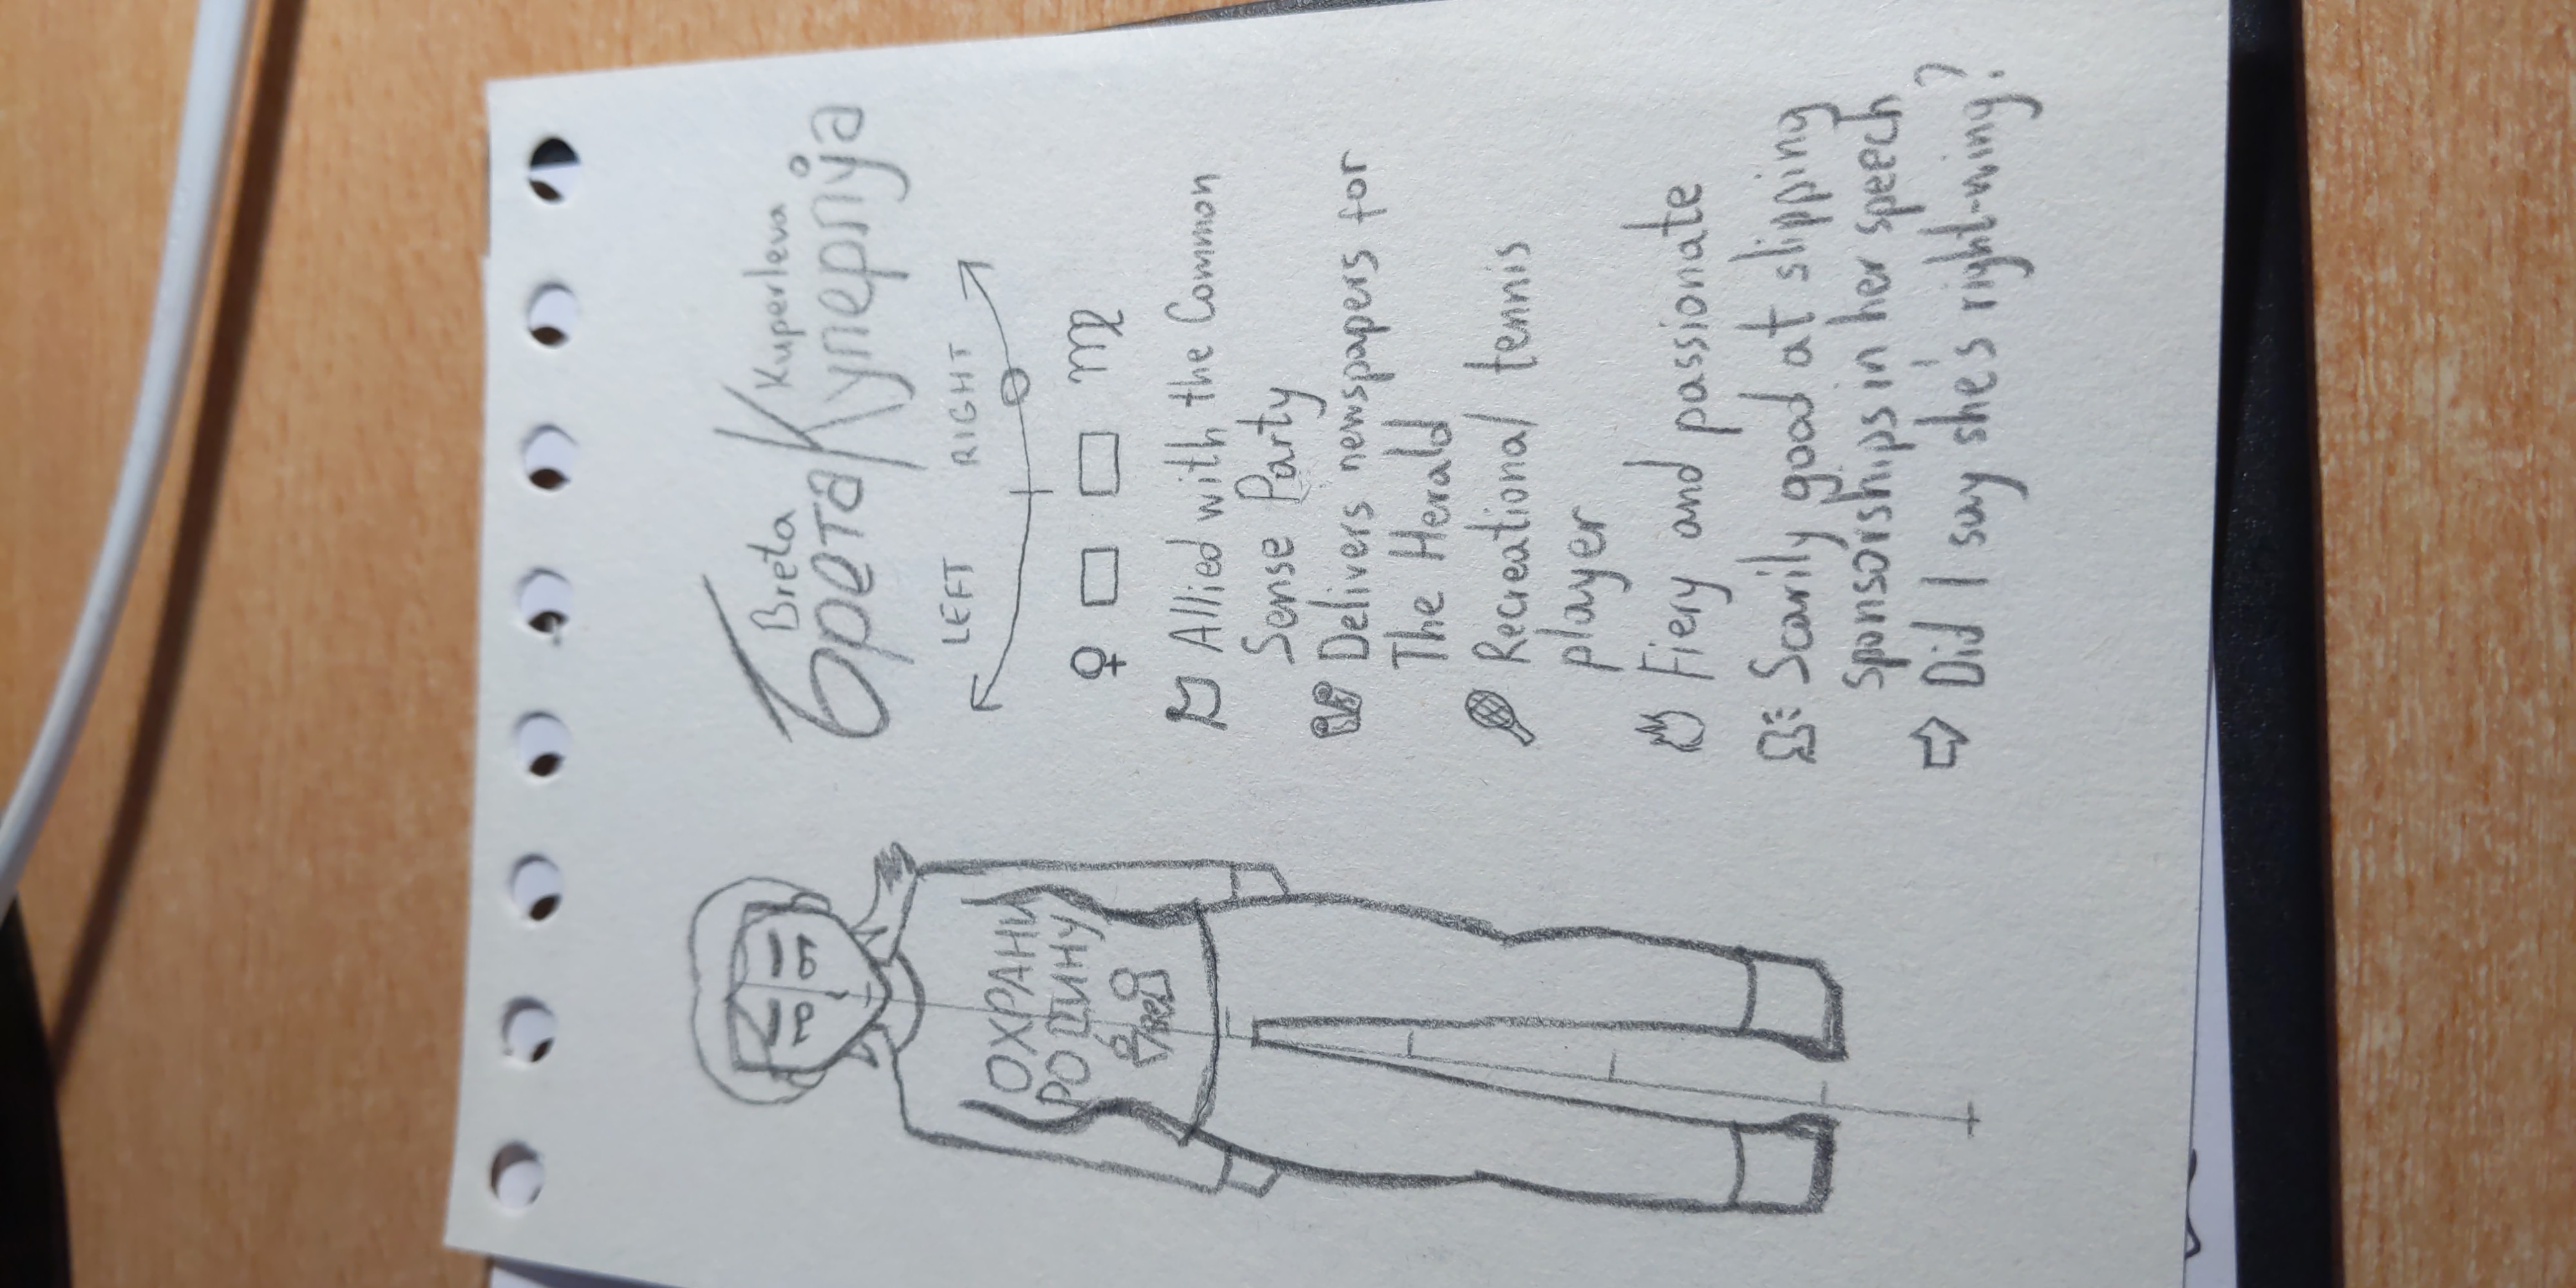 Breta Kuperleva
Брета
LEFT RIGHT
Allied with the Common
Sense Party
Delivers newspapers for
The Herald
Recreational tennis
player
Fiery and passionate
Scarily good at slipping
sponsorships in her speech
Did I say she's right-wing?
ОХРАНИ
РОДИНУ